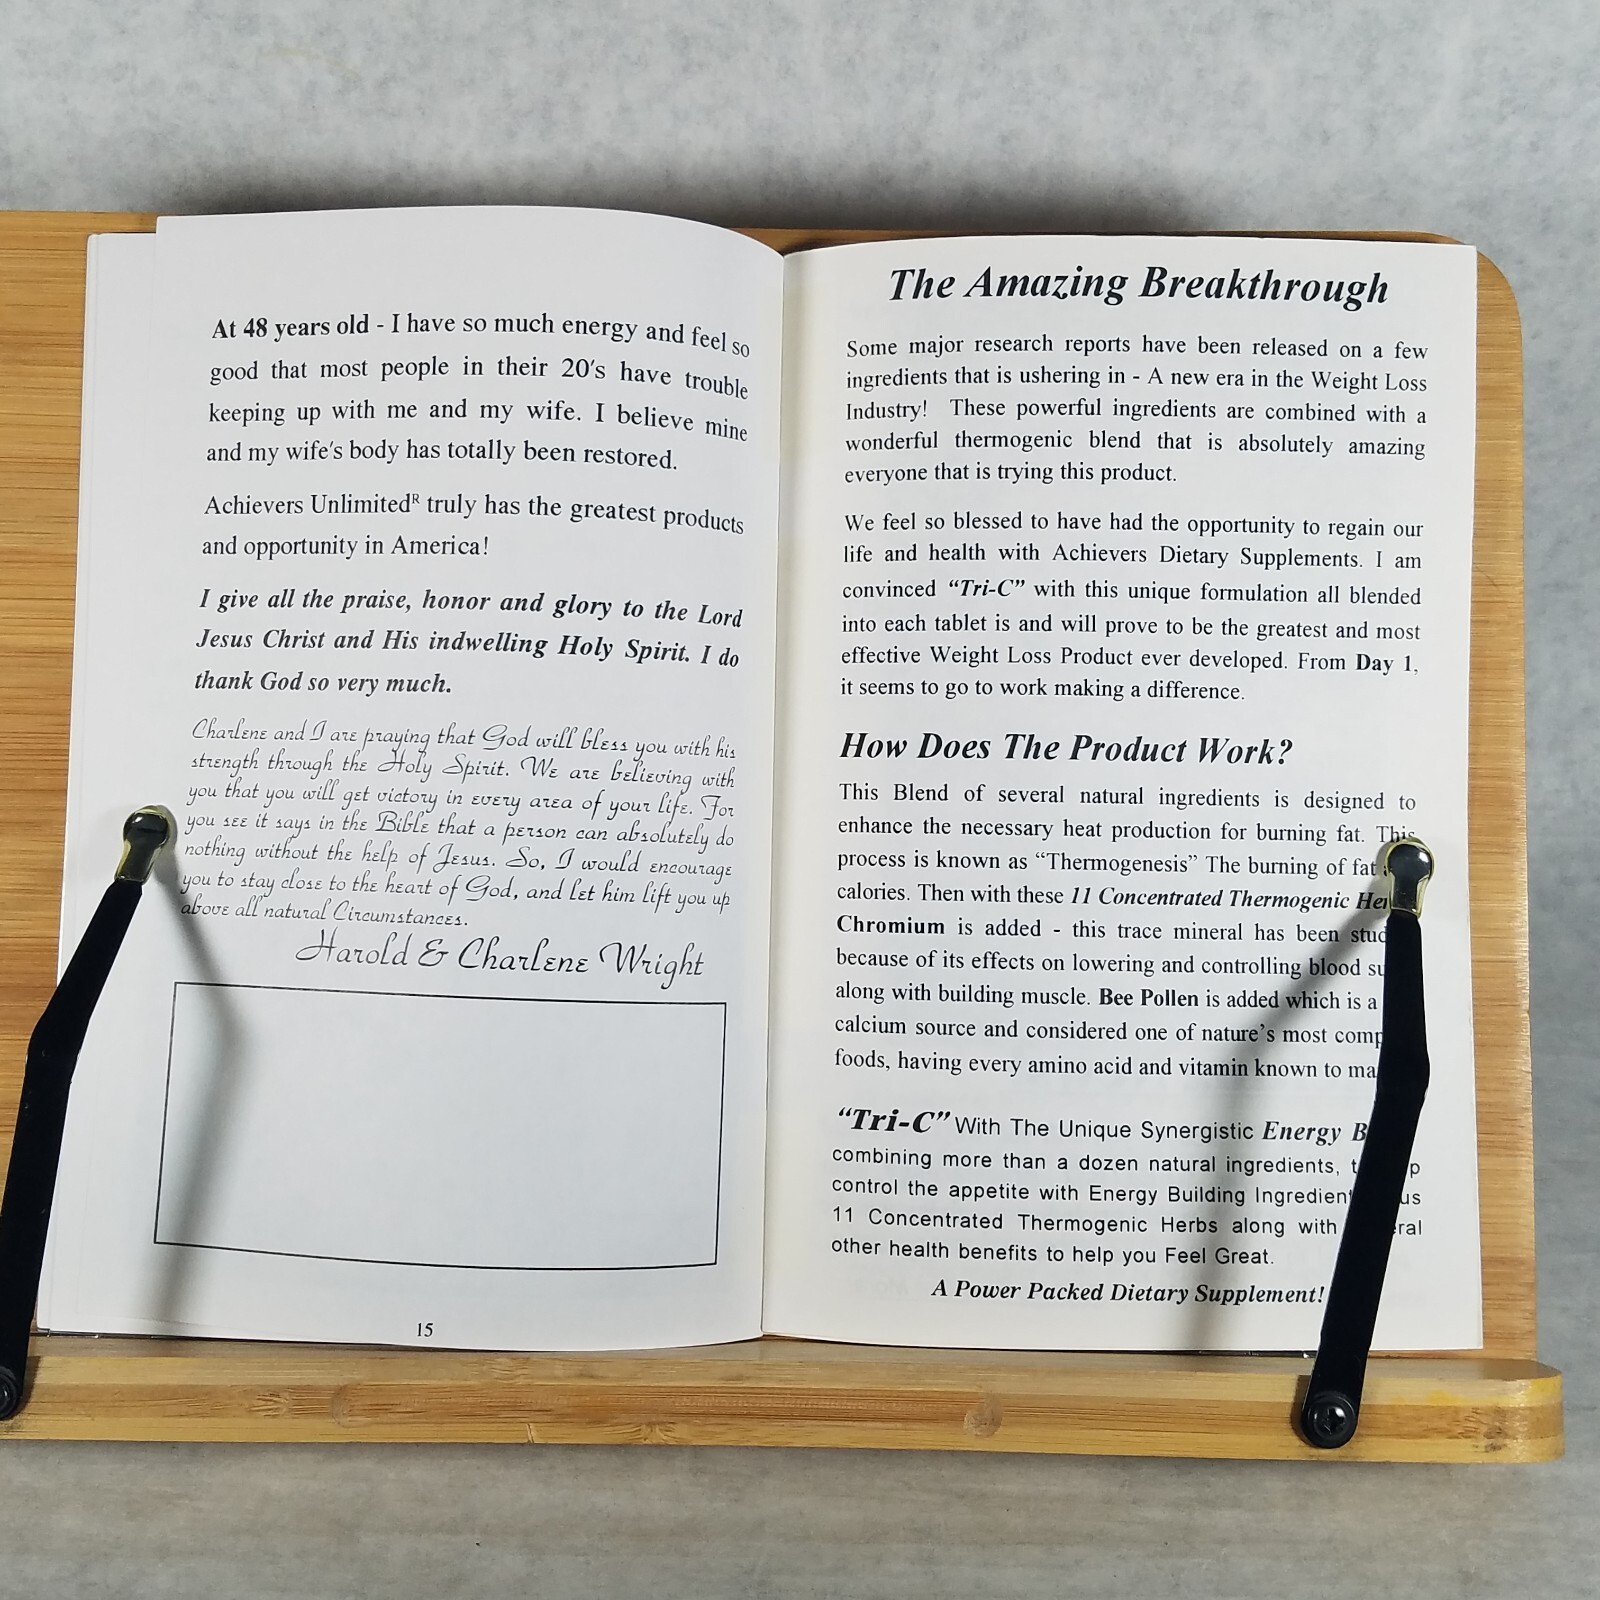 At 48 years old - I have so much energy and feel so
good that most people in their 20's have trouble
keeping up with me and my wife. I believe mine
and my wife's body has totally been restored.
Achievers Unlimitedᴿ truly has the greatest products
and opportunity in America!
I give all the praise, honor and glory to the Lord
Jesus Christ and His indwelling Holy Spirit. I do
thank God so very much.
Charlene and I are praying that God will bless you with his
strength through the Holy Spirit. We are believing with
you that you will get victory in every area of your life. For
you see it says in the Bible that a person can absolutely do
nothing without the help of Jesus. So, I would encourage
you to stay close to the heart of God, and let him lift you up
above all natural Circumstances.
Harold & Charlene Wright
15
The Amazing Breakthrough
Some major research reports have been released on a few
ingredients that is ushering in - A new era in the Weight Loss
Industry! These powerful ingredients are combined with a
wonderful thermogenic blend that is absolutely amazing
everyone that is trying this product.
We feel so blessed to have had the opportunity to regain our
life and health with Achievers Dietary Supplements. I am
convinced “Tri-C” with this unique formulation all blended
into each tablet is and will prove to be the greatest and most
effective Weight Loss Product ever developed. From Day 1,
it seems to go to work making a difference.
How Does The Product Work?
This Blend of several natural ingredients is designed to
enhance the necessary heat production for burning fat. This
process is known as “Thermogenesis” The burning of fat
calories. Then with these 11 Concentrated Thermogenic
Chromium is added - this trace mineral has been
because of its effects on lowering and controlling blood
along with building muscle. Bee Pollen is added which is a
calcium source and considered one of nature's most
foods, having every amino acid and vitamin known to
“Tri-C” With The Unique Synergistic Energy
combining more than a dozen natural ingredients,
control the appetite with Energy Building
11 Concentrated Thermogenic Herbs along with
other health benefits to help you Feel Great.
A Power Packed Dietary Supplement!